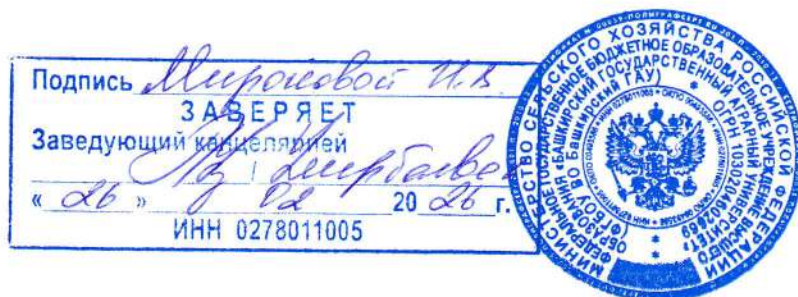 Подпись Мироновой И.В.
ЗАВЕРЯЕТ
Заведующий канцелярией
« 26 » 02 20 26 г.
ИНН 0278011005
МИНИСТЕРСТВО СЕЛЬСКОГО ХОЗЯЙСТВА РОССИЙСКОЙ ФЕДЕРАЦИИ
ФЕДЕРАЛЬНОЕ ГОСУДАРСТВЕННОЕ БЮДЖЕТНОЕ ОБРАЗОВАТЕЛЬНОЕ УЧРЕЖДЕНИЕ ВЫСШЕГО
ОБРАЗОВАНИЯ «БАШКИРСКИЙ ГОСУДАРСТВЕННЫЙ АГРАРНЫЙ УНИВЕРСИТЕТ»
(ФГБОУ ВО Башкирский ГАУ)